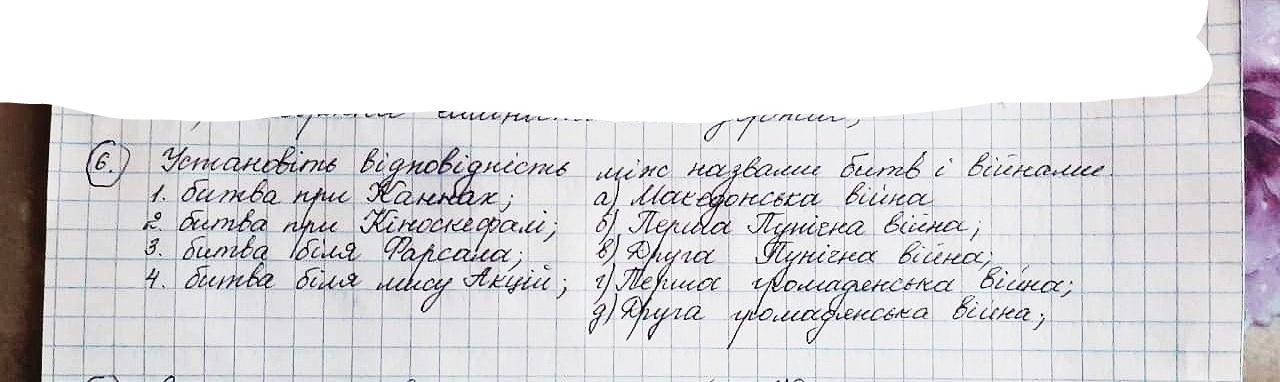 6. Установіть відповідність між назвами битв і війнами.
1. битва при Каннах; а) Македонська війна
2. битва при Кіноскефалі; б) Перша Пунічна війна;
3. битва біля Фарсала; в) Друга Пунічна війна;
4. битва біля мису Акцій; г) Перша громадянська війна;
д) Друга громадянська війна;